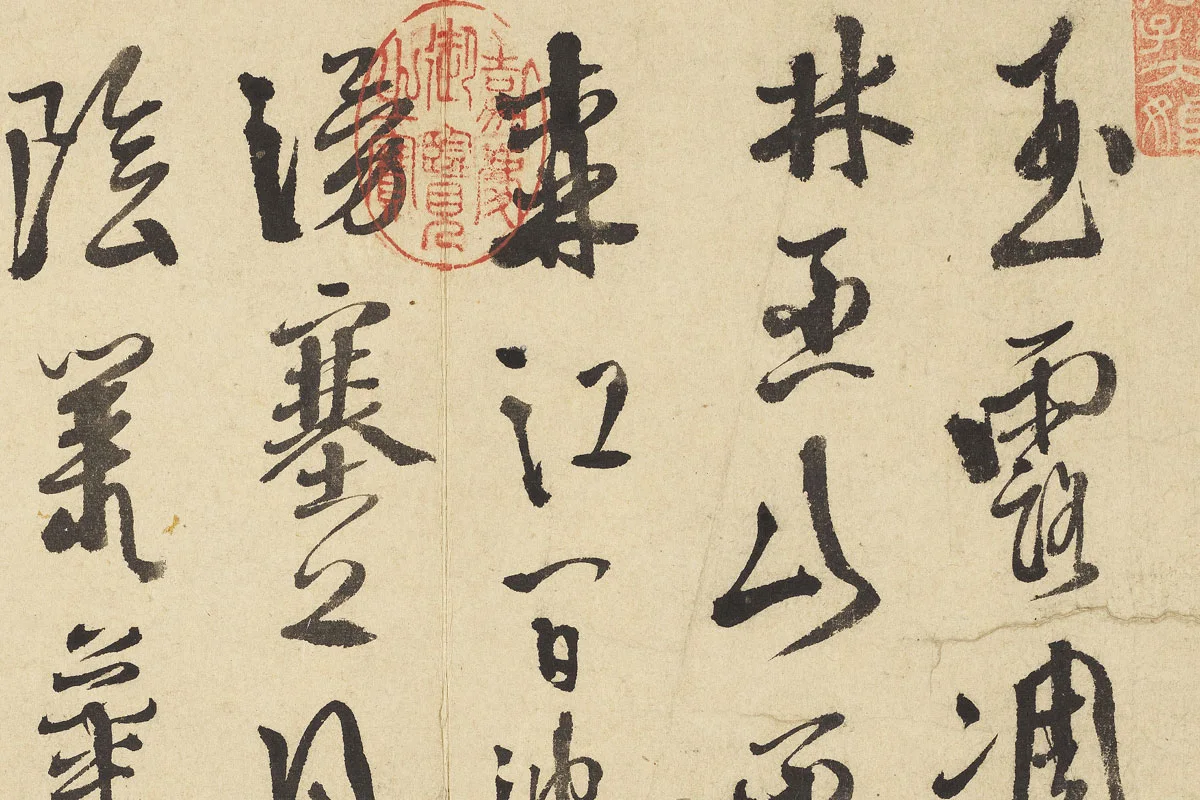 玉露凋
林巫山巫
森江間波
湧塞上風
陰叢菊
嘉慶御覽之寶